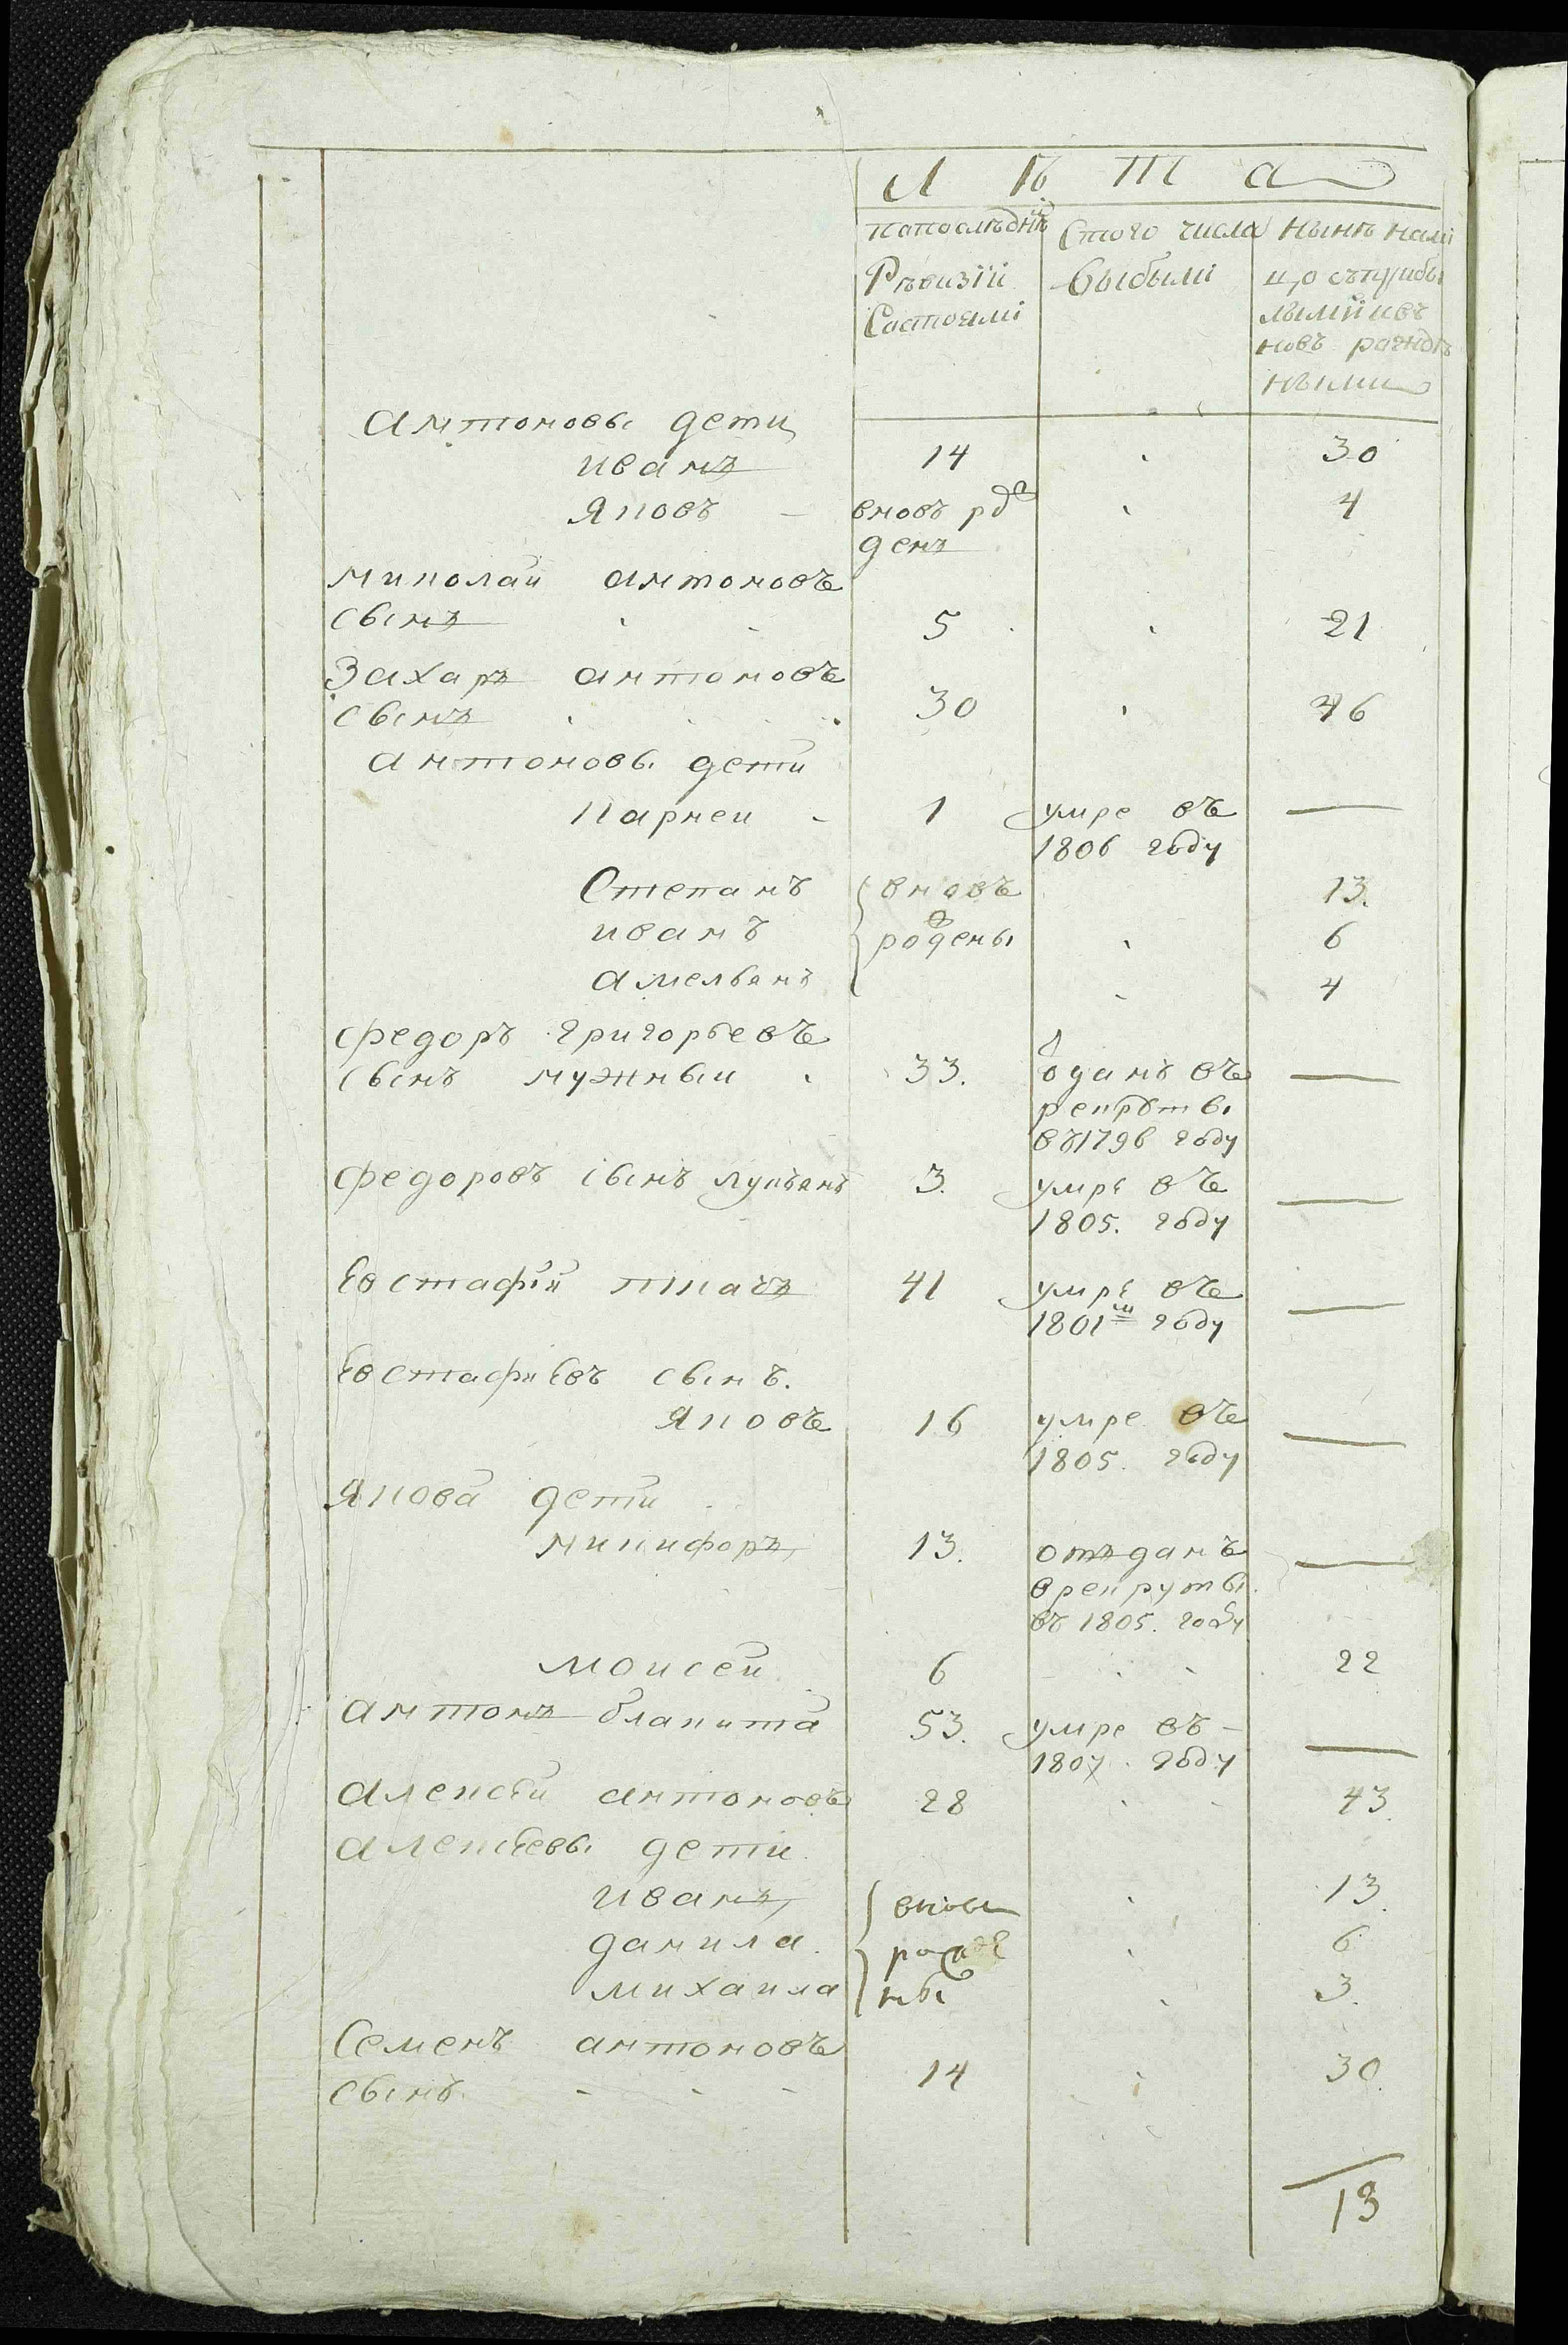 Л Ѣ Т А
попоследнѣй Стого числа Нынѣ нали
Рѣвизіи выбыли цо съприбы
Состояли лыми ивъ
новъ рожде
ными
антоновы дети
иванъ 14 30
яковъ вновъ рож 4
денъ
николаи антоновъ
сынъ 5 21
Захаръ антоновъ
сынъ 30 46
антоновы дети
карнеи 1 умре въ —
1806 году
Степанъ вновъ 13.
иванъ рождены 6
амельянъ 4
федоръ григорьевъ
сынъ нужныи 33. оданъ въ —
рекруты
въ 1796 году
федоровъ сынъ лукьянъ 3. умре въ —
1805. году
Евстафіи ткачъ 41 умре въ —
1801м году
Евстафиевъ сынъ.
яковъ 16 умре въ —
1805. году
якова дети
никифоръ 13. отъданъ —
врекруты
въ 1805. году
моисеи 6 22
антонъ блакита 53. умре въ —
1807. году
алексеи антоновъ 28 43.
алексеевы дети
иванъ вновь 13.
данила рожде 6
михаила ны 3.
Семенъ антоновъ
сынъ 14 30.
13